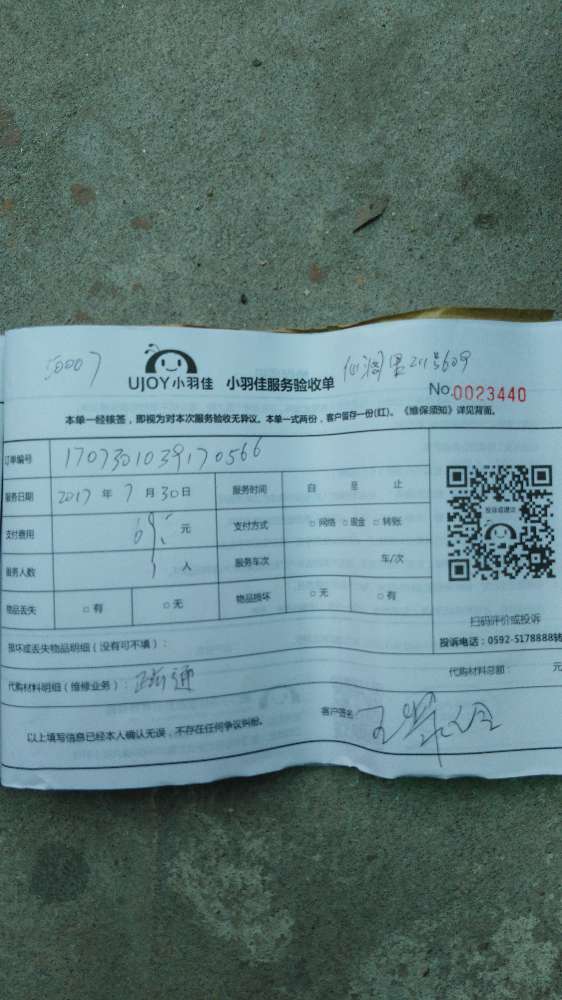 50007
UJOY小羽佳 小羽佳服务验收单
No.0023440
本单一经核签，即视为对本次服务验收无异议。本单一式两份，客户留存一份(红)。《维保须知》详见背面。
订单编号 1707301039170566
服务日期 2017 年 7 月 30 日 服务时间 自 至 止
支付费用 元 支付方式 □ 网络 □ 现金 □ 转账
服务人数 1 人 服务车次 车/次
物品丢失 □ 有 □ 无 物品损坏 □ 无 □ 有
扫码评价或投诉
投诉电话：0592-5178888转
损坏或丢失物品明细（没有可不填）：
代购材料明细（维修业务）： 代购材料总额： 元
以上填写信息已经本人确认无误，不存在任何争议纠纷。 客户签名